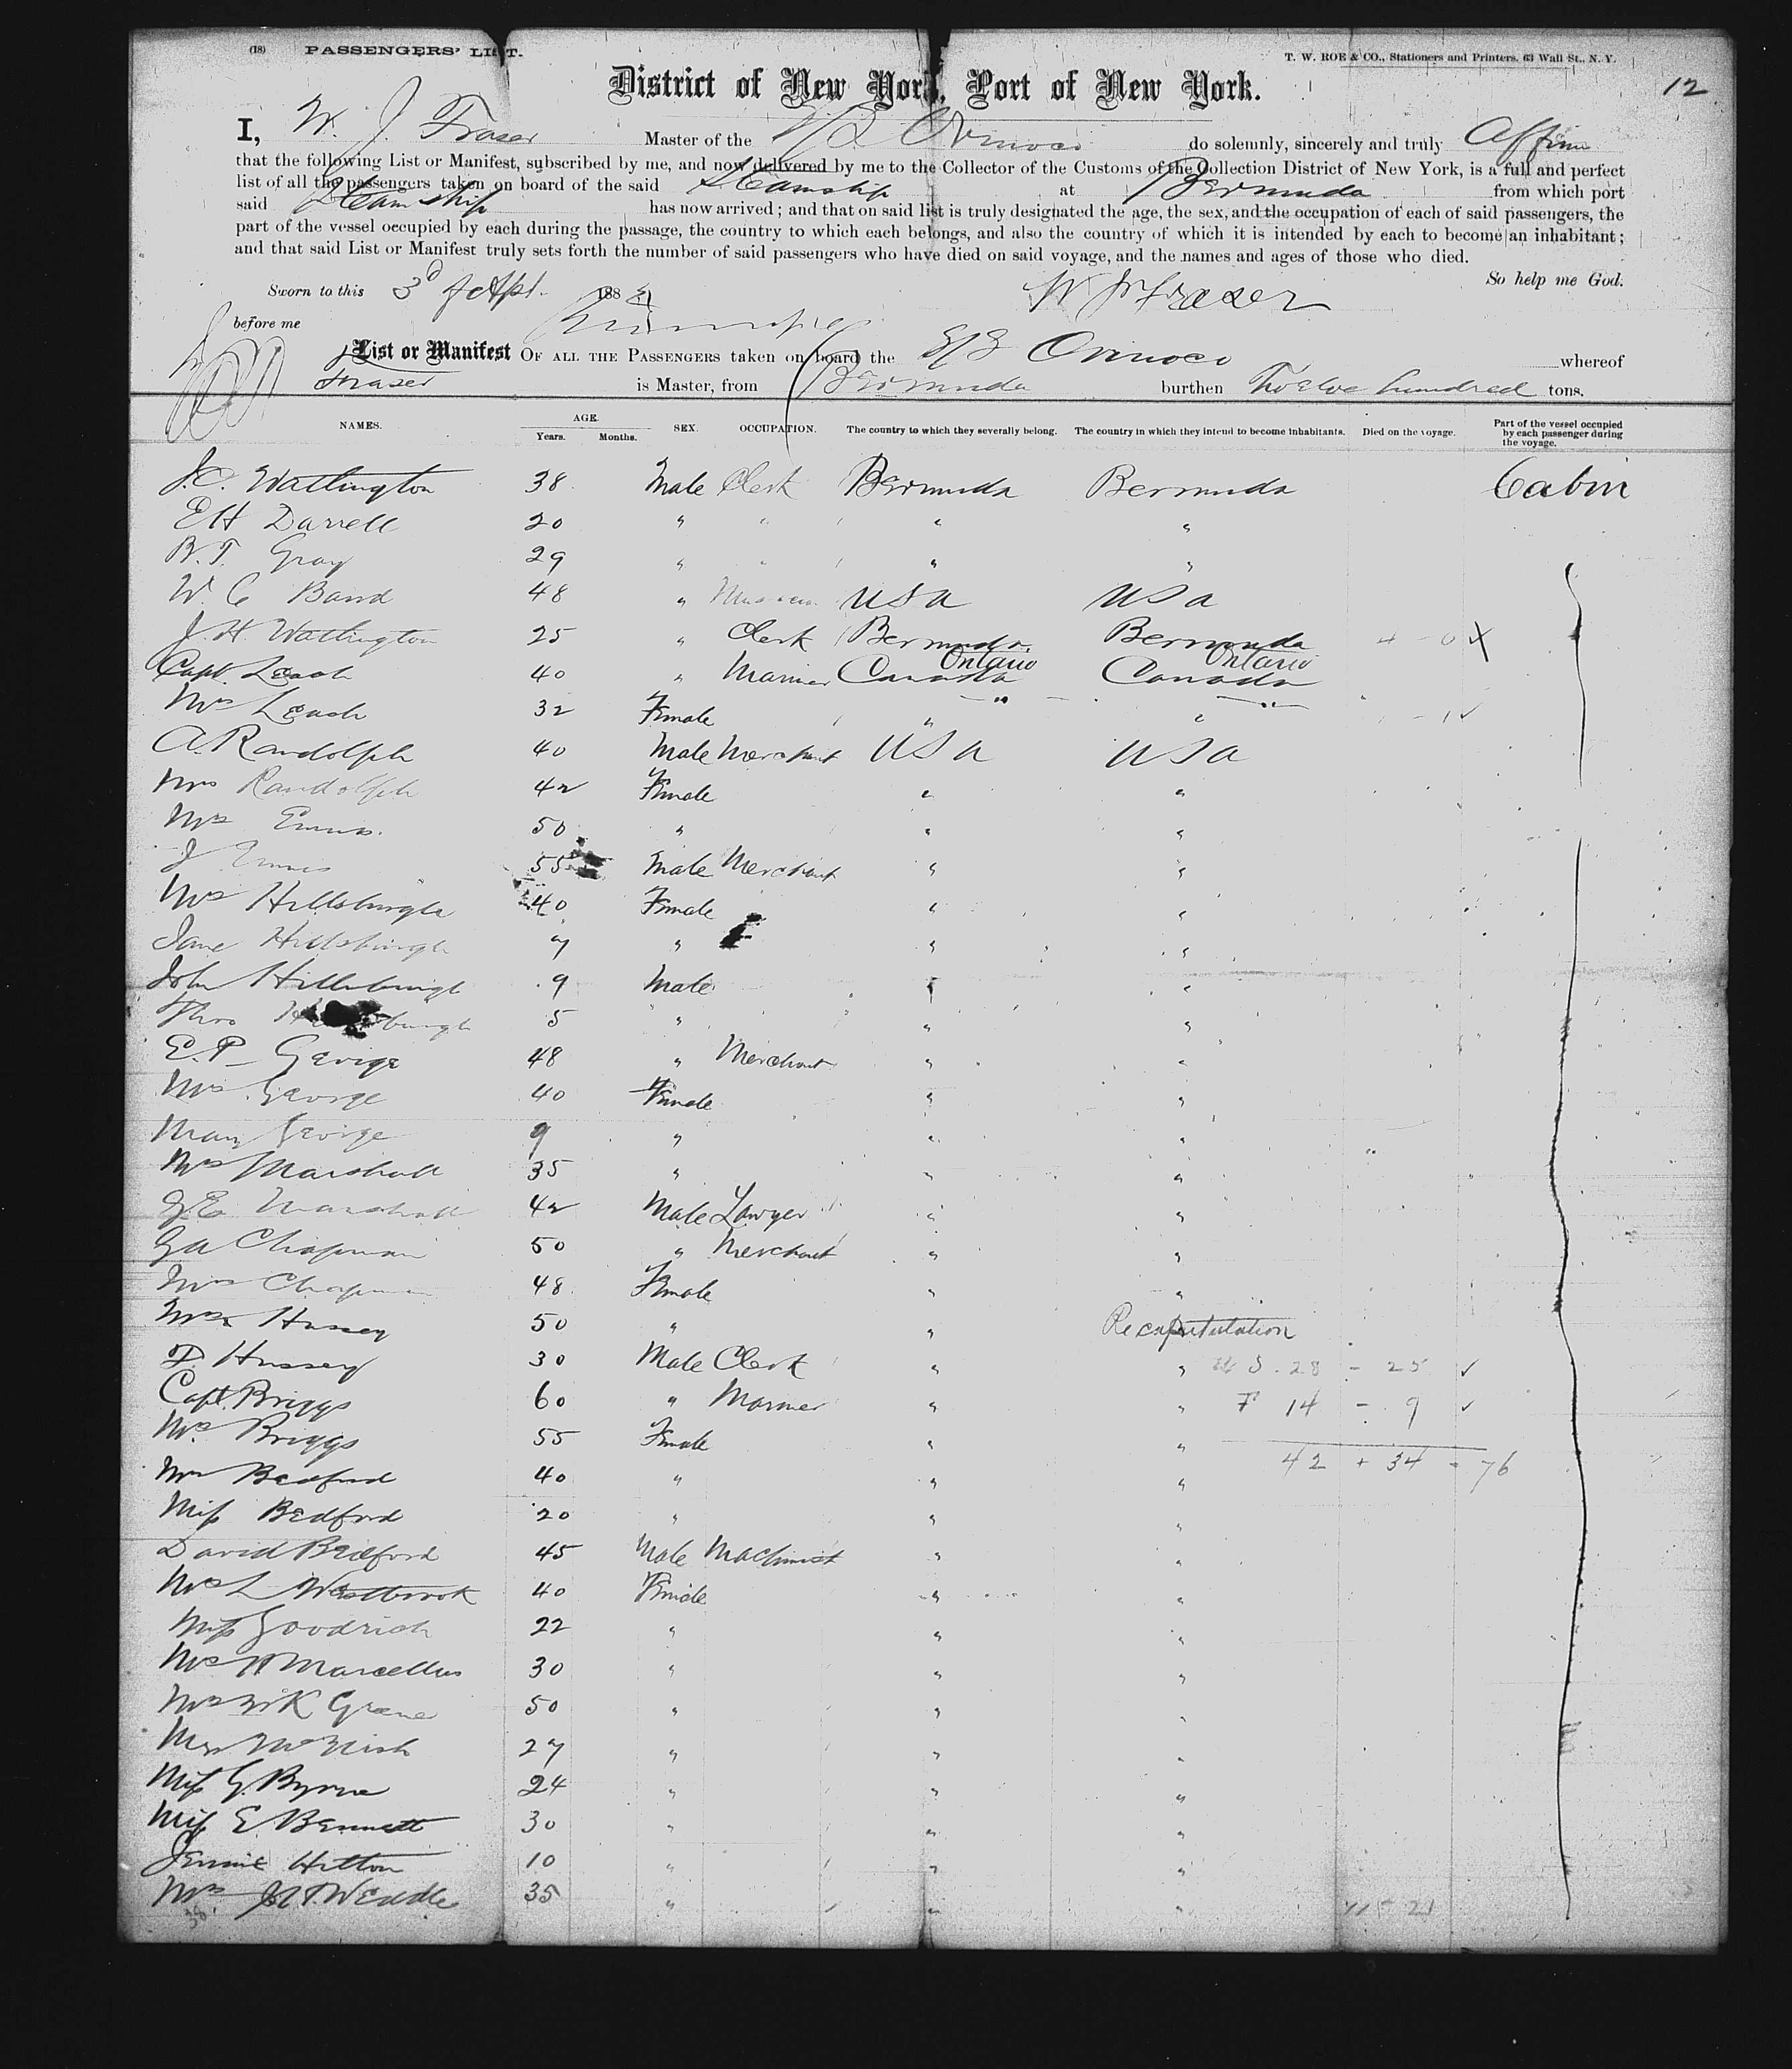 (18) PASSENGERS' LIST.
T. W. ROE & CO., Stationers and Printers, 63 Wall St., N. Y.
12
District of New York, Port of New York.
I, W. J. Fraser Master of the S/S Orinoco do solemnly, sincerely and truly Affirm
that the following List or Manifest, subscribed by me, and now delivered by me to the Collector of the Customs of the Collection District of New York, is a full and perfect
list of all the passengers taken on board of the said Steamship at Bermuda from which port
said Steamship has now arrived; and that on said list is truly designated the age, the sex, and the occupation of each of said passengers, the
part of the vessel occupied by each during the passage, the country to which each belongs, and also the country of which it is intended by each to become an inhabitant;
and that said List or Manifest truly sets forth the number of said passengers who have died on said voyage, and the names and ages of those who died.
So help me God.
Sworn to this 3d of Apl. 188 W J Fraser
before me
List or Manifest OF ALL THE PASSENGERS taken on board the S/S Orinoco whereof
Fraser is Master, from Bermuda burthen Twelve hundred tons.
NAMES. AGE. Years. Months. SEX. OCCUPATION. The country to which they severally belong. The country in which they intend to become inhabitants. Died on the voyage. Part of the vessel occupied by each passenger during the voyage.
J.C. Watlington 38 Male Clerk Bermuda Bermuda Cabin
E H Darrell 20 " " " "
B. T. Gray 29 " " " "
W. C Band 48 " USA USA
J. H. Watlington 25 " Clerk Bermuda Bermuda 4 - 0 X
Capt. Leach 40 " Mariner Canada Ontario Canada Ontario
Mrs Leach 32 Female " " - 1 ✓
A. Randolph 40 Male Merchant USA USA
Mrs Randolph 42 Female " "
Mrs 50 " " "
J 55 Male Merchant " "
Mrs Hillsburgh 40 Female " "
Jane Hillsburgh 7 " " "
John Hillsburgh 9 Male " "
Thos burgh 5 " " "
E. P. George 48 " Merchant " "
Mrs George 40 Female " "
Mary George 9 " " "
Mrs Marshall 35 " " "
J E Marshall 42 Male Lawyer " "
G A Chapman 50 " Merchant " "
Mrs Chapman 48 Female " "
Mrs Hussey 50 " " Recapitulation
F. Hussey 30 Male Clerk " " U S. 28 - 25 ✓
Capt. Briggs 60 " Mariner " " F 14 - 9 ✓
Mrs Briggs 55 Female " " 42 + 34 = 76
Mrs Bedford 40 " " "
Miss Bedford 20 " " "
David Bedford 45 Male Machinist " "
Mrs L Westbrook 40 Female " "
Miss Goodrich 22 " " "
Mrs Marcellus 30 " " "
Mrs K Greene 50 " " "
McNish 27 " " "
Miss G. Byrne 24 " " "
Miss E. Bennett 30 " " "
Jennie Hilton 10 " " "
Mrs T. Weadle 35 " " "
38